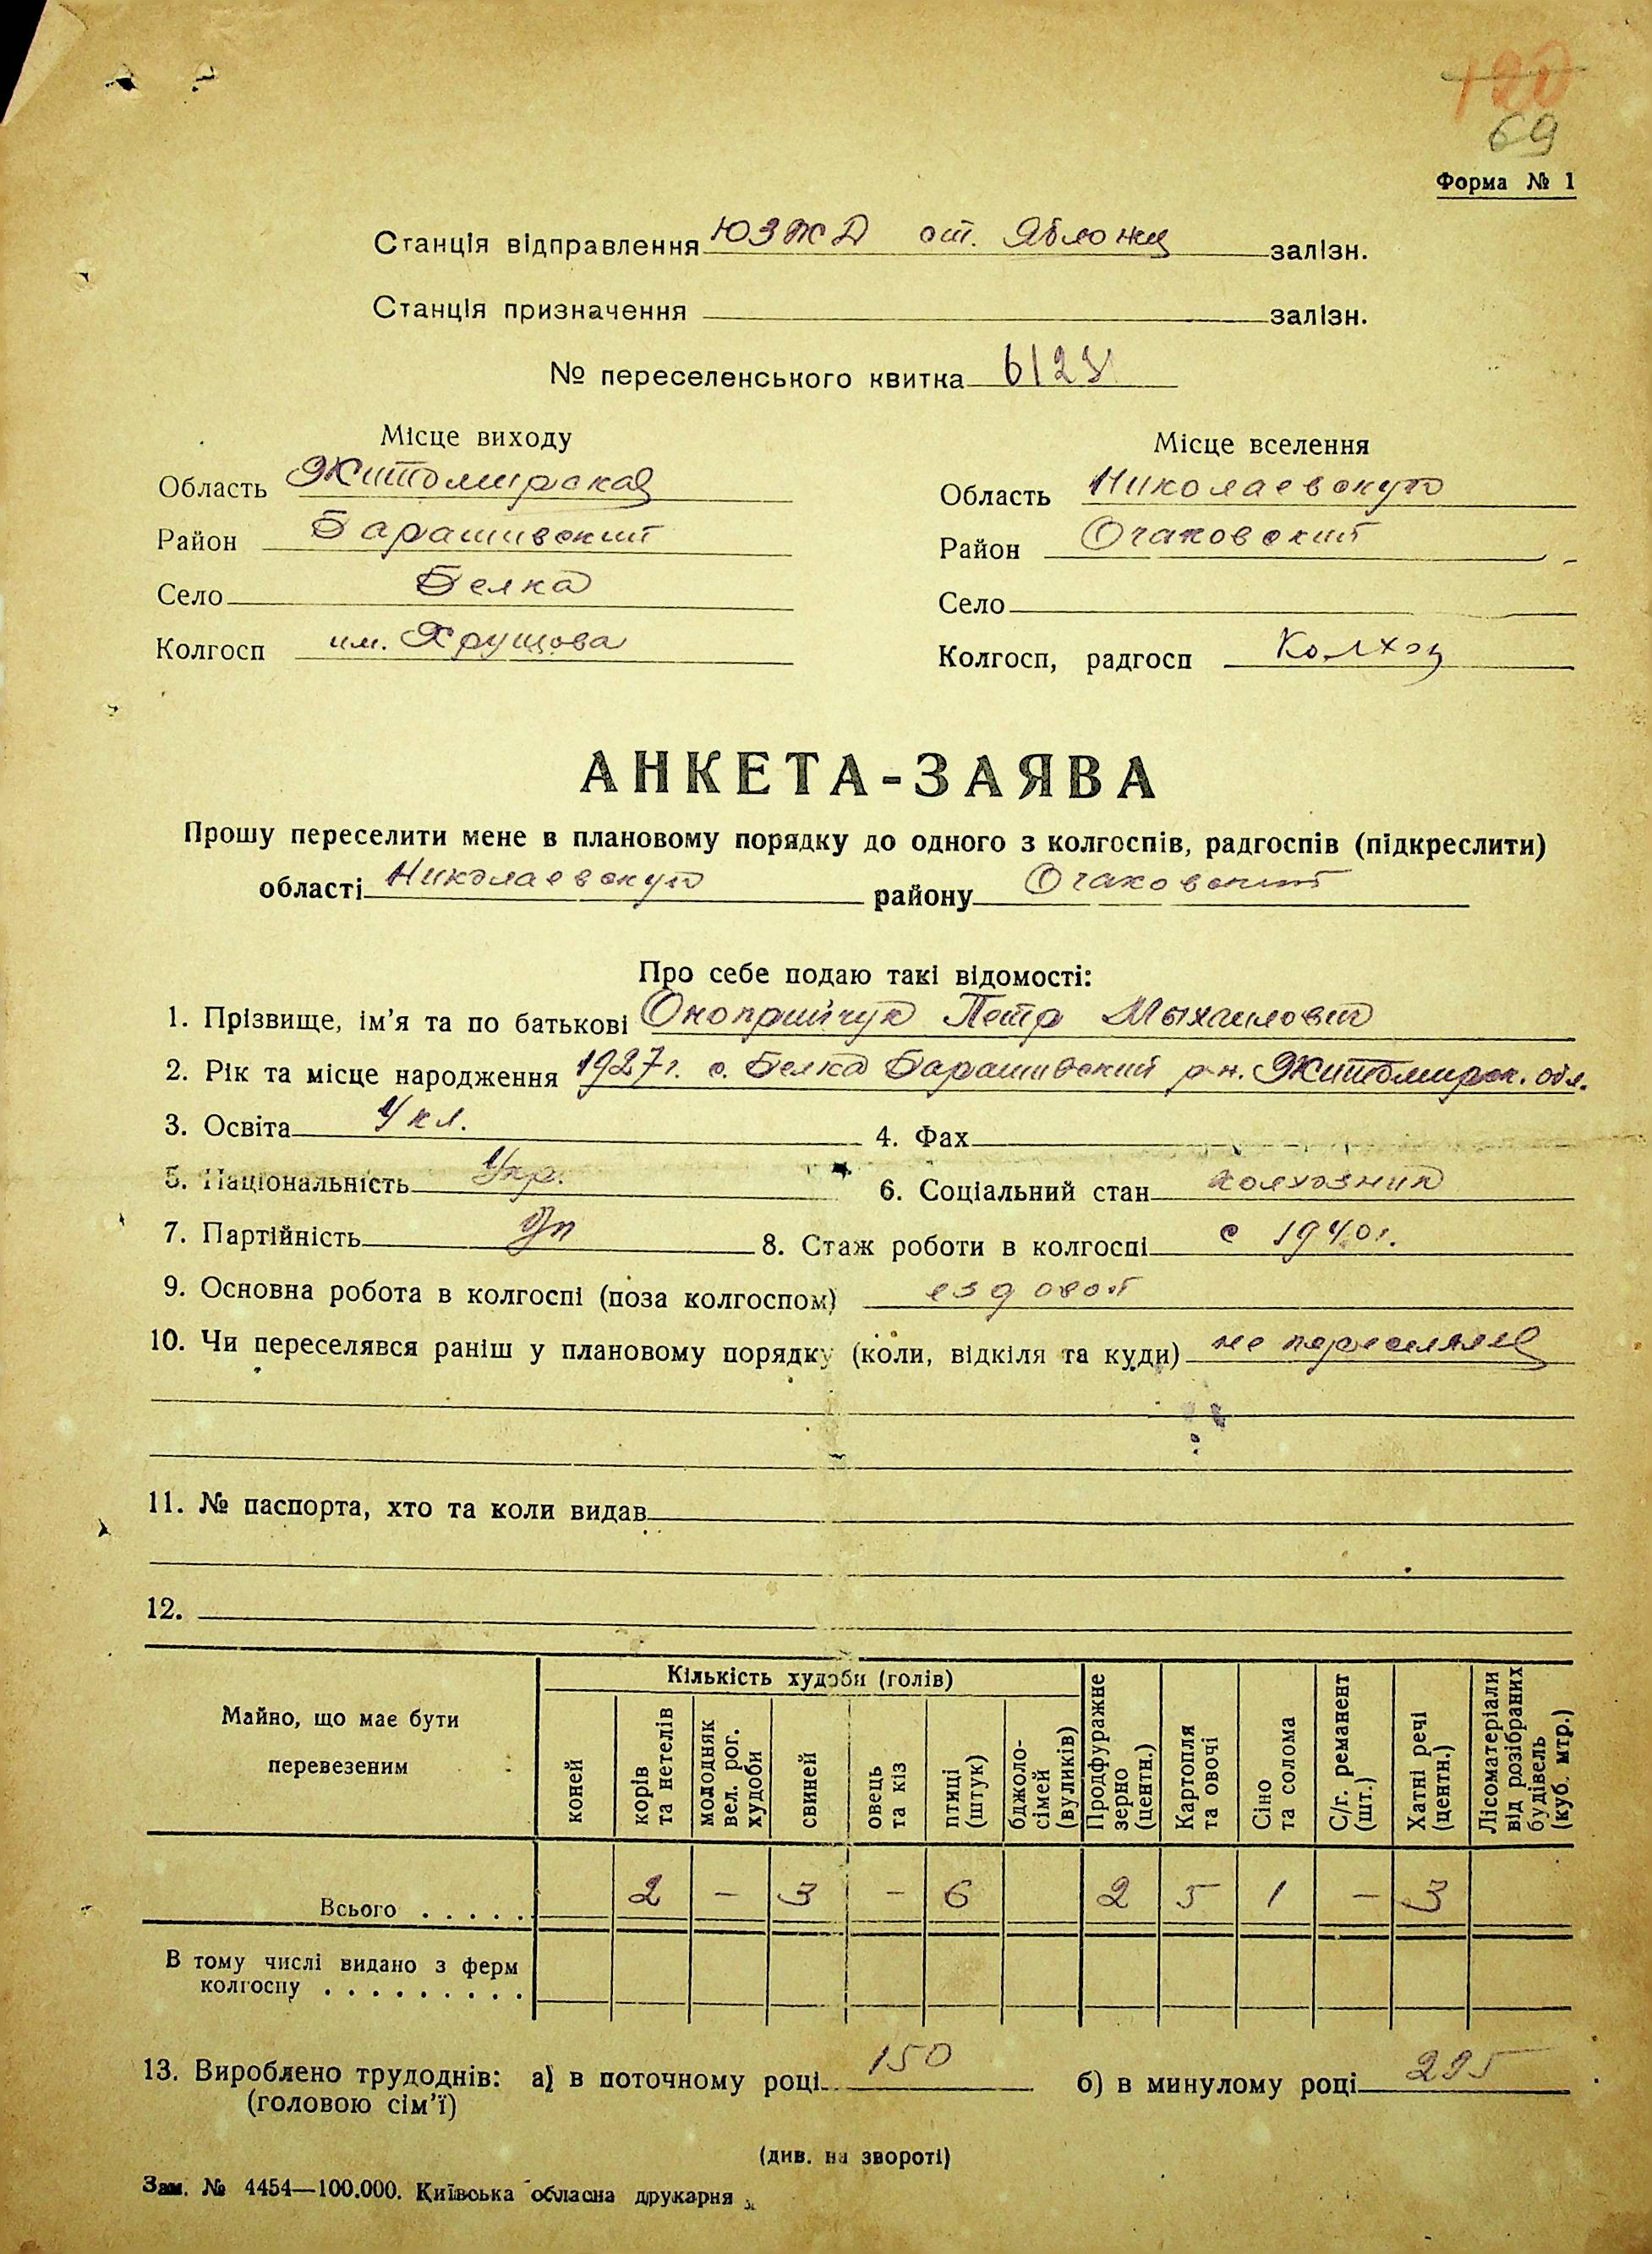 120
69
Форма № 1
Станція відправлення ЮЗЖД ст. Яблонец залізн.
Станція призначення залізн.
№ переселенського квитка
Місце виходу
Область Житомирская
Район Барашивский
Село Белка
Колгосп им. Хрущова
Місце вселення
Область Николаевскую
Район Очаковский
Село
Колгосп, радгосп Колхоз
АНКЕТА-ЗАЯВА
Прошу переселити мене в плановому порядку до одного з колгоспів, радгоспів (підкреслити)
області Николаевскую району Очаковский
Про себе подаю такі відомості:
1. Прізвище, ім’я та по батькові Оноприйчук Петр Мыхаилович
2. Рік та місце народження 1927 г. с. Белка Барашивский р-н. Житомирск. обл.
3. Освіта 4 кл. 4. Фах
5. Національність Укр. 6. Соціальний стан колхозник
7. Партійність 8. Стаж роботи в колгоспі с 1940 г.
9. Основна робота в колгоспі (поза колгоспом) ездовой
10. Чи переселявся раніш у плановому порядку (коли, відкіля та куди) не переселялся
11. № паспорта, хто та коли видав
12.
Майно, що має бути перевезеним
Кількість худоби (голів)
коней
корів та нетелів
молодняк вел. рог. худоби
свиней
овець та кіз
птиці (штук)
бджоло-сімей (вуликів)
Продфуражне зерно (центн.)
Картопля та овочі
Сіно та солома
С/г. реманент (шт.)
Хатні речі (центн.)
Лісоматеріали від розібраних будівель (куб. мтр.)
Всього . . . . . 2 - 3 - 6 2 5 1 - 3
В тому числі видано з ферм
колгоспу . . . . . . . . .
13. Вироблено трудоднів: а) в поточному році 150 б) в минулому році 295
(головою сім’ї)
(див. на звороті)
Зам. № 4454—100.000. Київська обласна друкарня